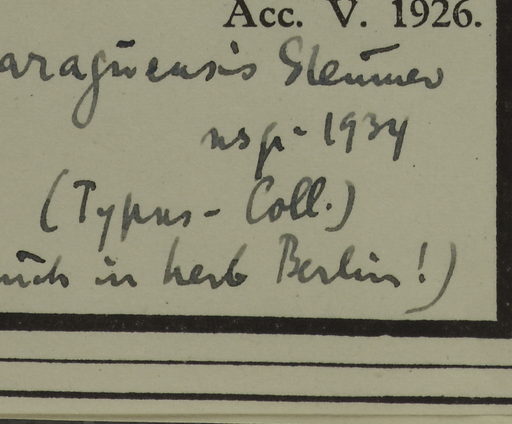 Acc. V. 1926.
araguensis Sleumer
nsp. 1934
(Typus-Coll.)
in herb Berlin!)